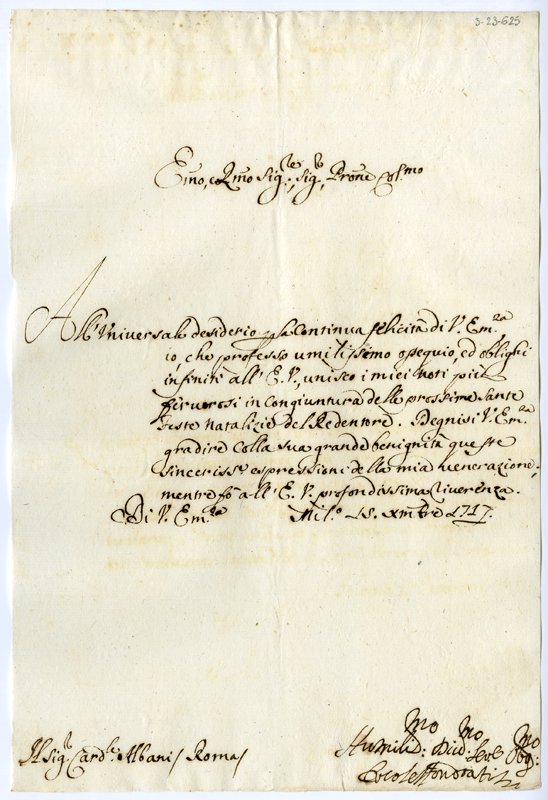 3-23-625
Emo, e Rmo Sig.re, Sig.r Prone Col.mo
All'Universale desiderio p la Continua felicità di V. Em.za
io, che professo umilissimo ossequio, ed oblighi
infiniti all'E. V., unisco i miei Voti più
fervorosi in congiuntura delle prossime Sante
Feste Natalizie del Redentore. Degnisi V. Em.za
gradire colla sua grande benignità queste
sinceriss.e espressioni della mia venerazione,
mentre fò all'E. V. profondissima riverenza.
Di V. Em.za Mil.o 15. Xmbre 1717.
Humilis:mo Div:mo Ser.e Obg:mo
Il Sig.r Card.le Albani / Roma /